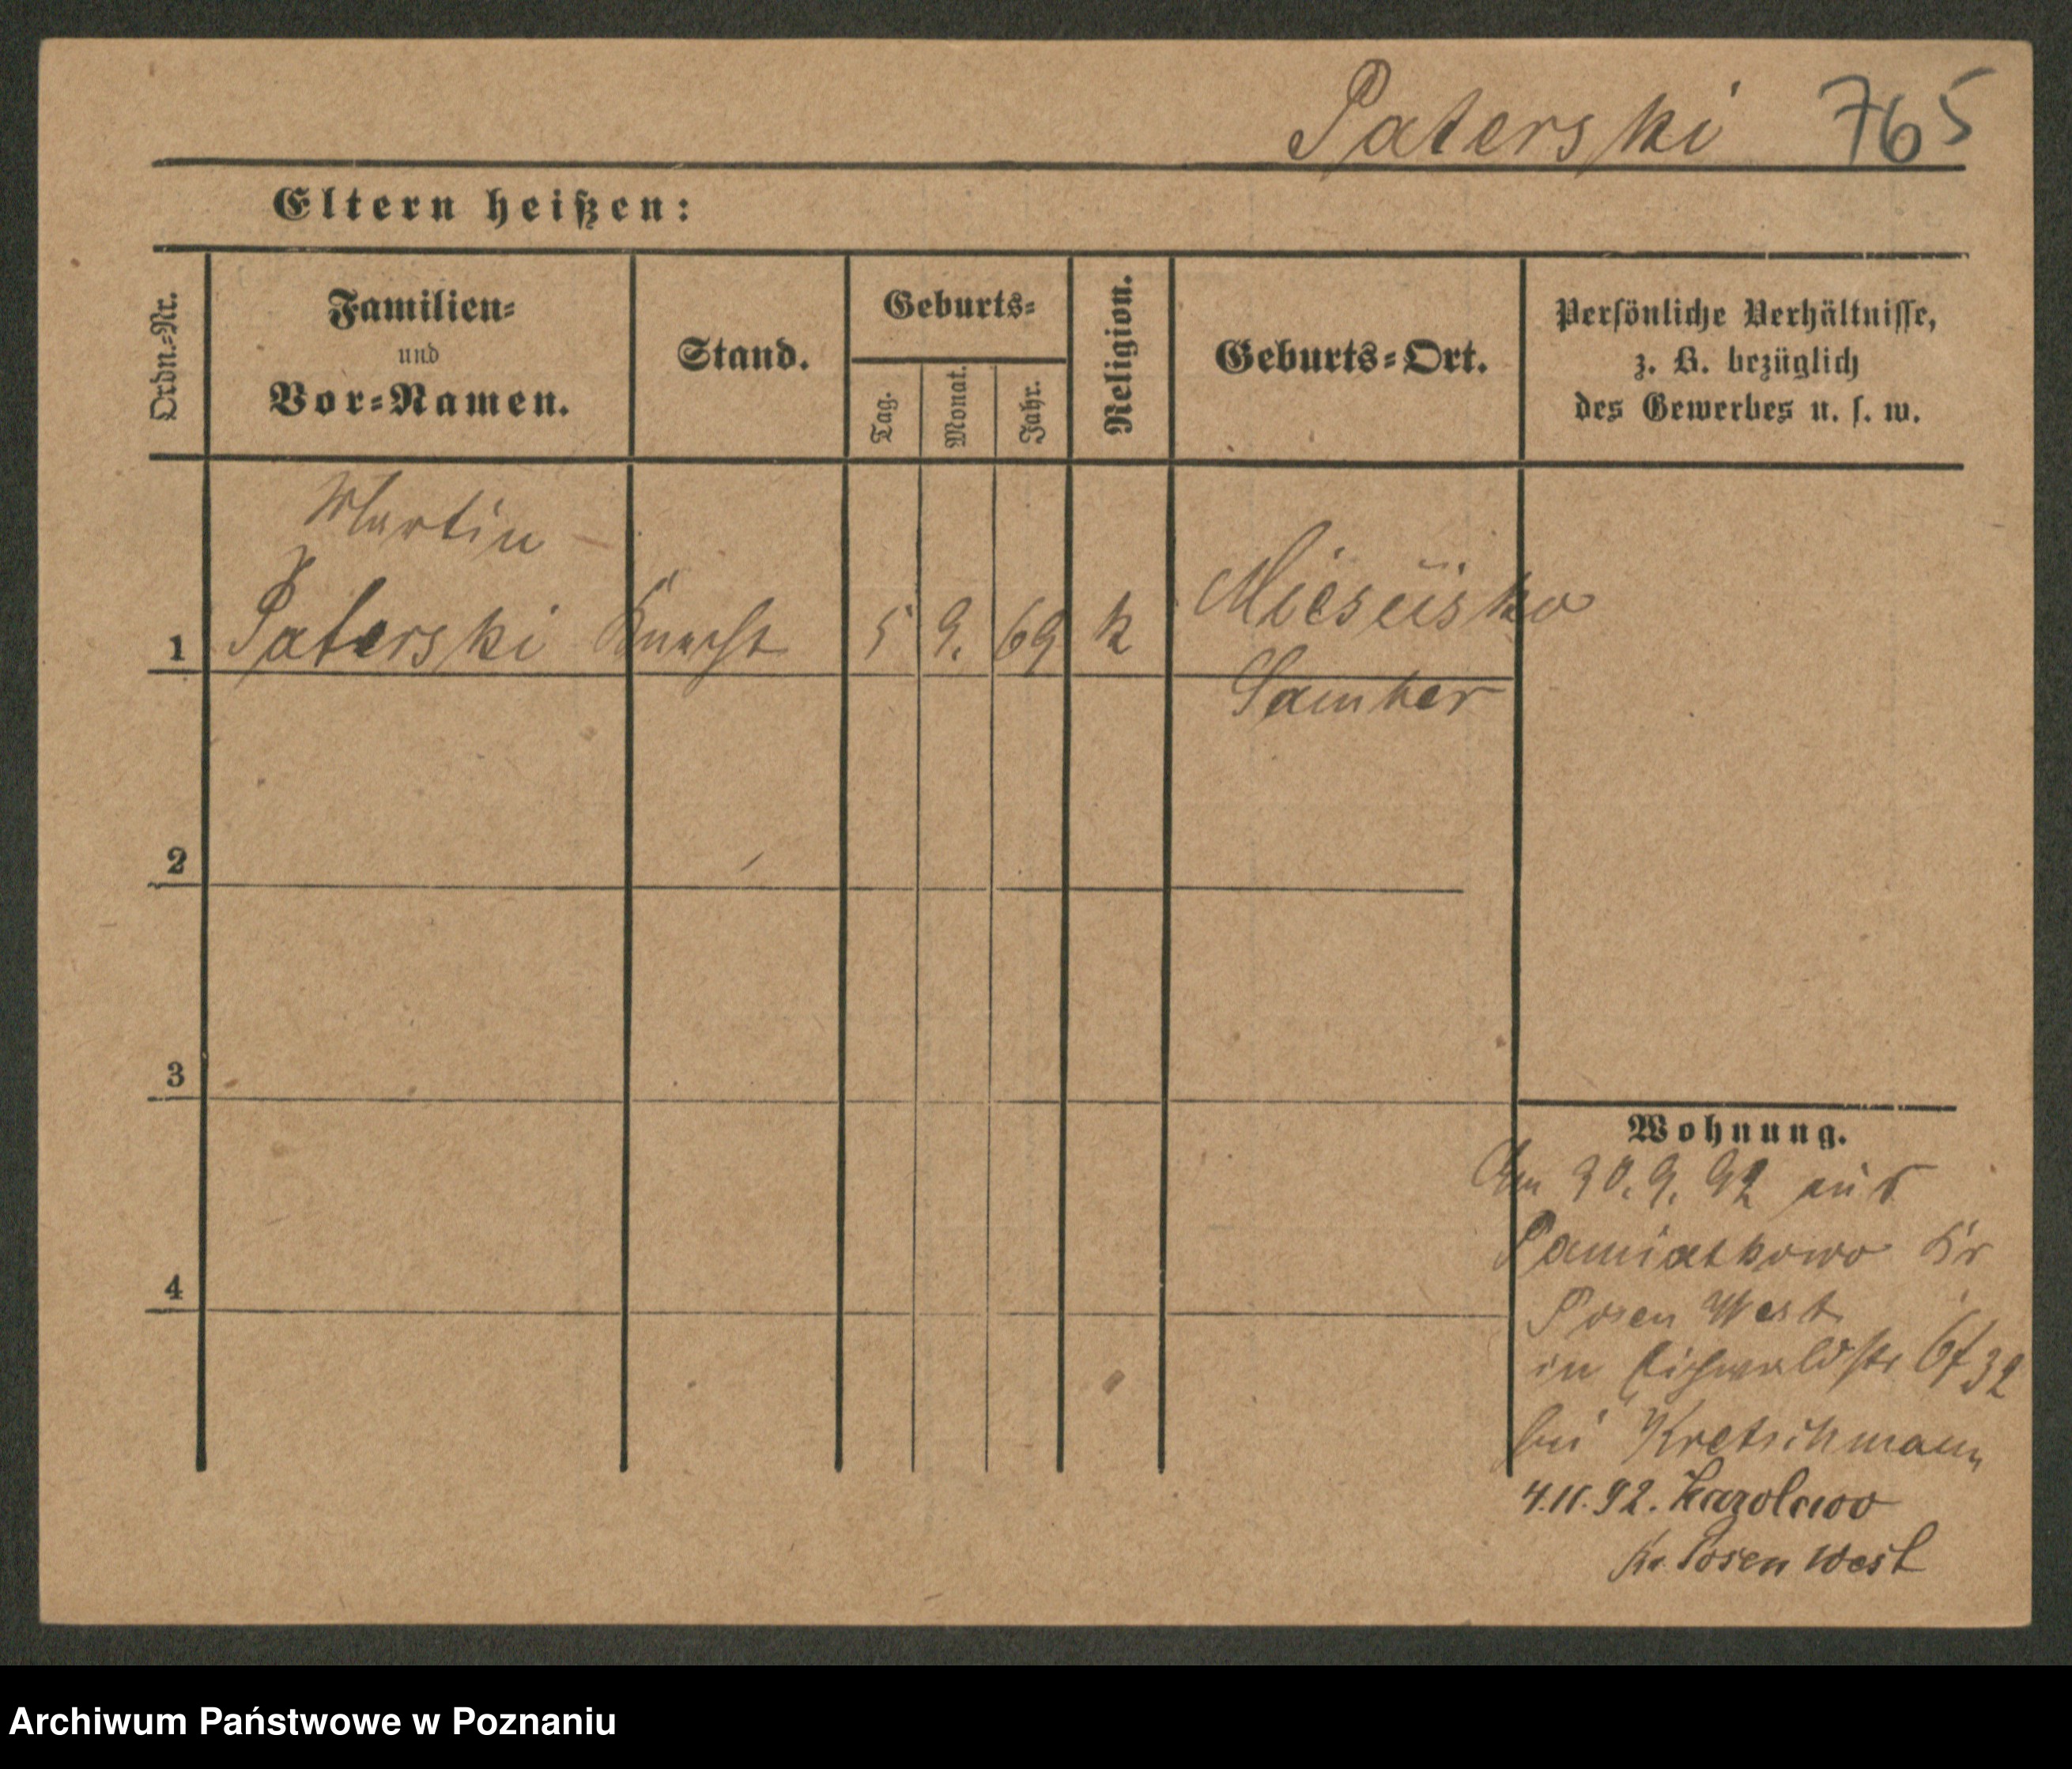 Paterski 765
Eltern heißen:
Ordn.-Nr.
Familien-
und
Vor-Namen.
Stand.
Geburts-
Tag.
Monat.
Jahr.
Religion.
Geburts-Ort.
Persönliche Verhältnisse,
z. B. bezüglich
des Gewerbes u. s. w.
Martin
1 Paterski Knecht 5 9. 69 k
Samter
2
3
4
Wohnung.
Am 30. 9. 92 aus
Pamiatkowo Kr
Posen West
in Eichwaldstr
bei Kretschmann
4.11.92.
Kr. Posen West
Archiwum Państwowe w Poznaniu